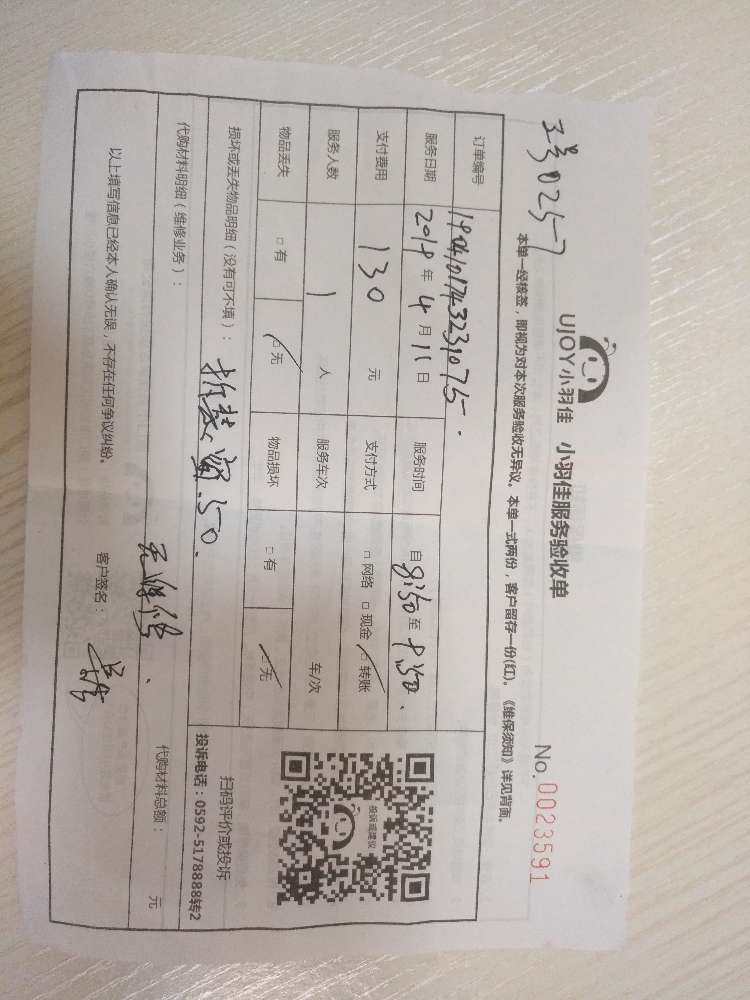 工号0257
UJOY小羽佳 小羽佳服务验收单
No.0023591
本单一经核签，即视为对本次服务验收无异议。本单一式两份，客户留存一份(红)。《维保须知》详见背面。
订单编号 19041017432331075.
服务日期 2019年4月11日 服务时间 自8:50至9:50.
支付费用 130 元 支付方式 □网络 □现金 □转账
服务人数 1 人 服务车次 车/次
物品丢失 □有 □无 物品损坏 □有 □无
投诉或建议
扫码评价或投诉
投诉电话：0592-5178888转2
损坏或丢失物品明细（没有可不填）：
50.
代购材料明细（维修业务）：
代购材料总额： 元
以上填写信息已经本人确认无误，不存在任何争议纠纷。 客户签名：